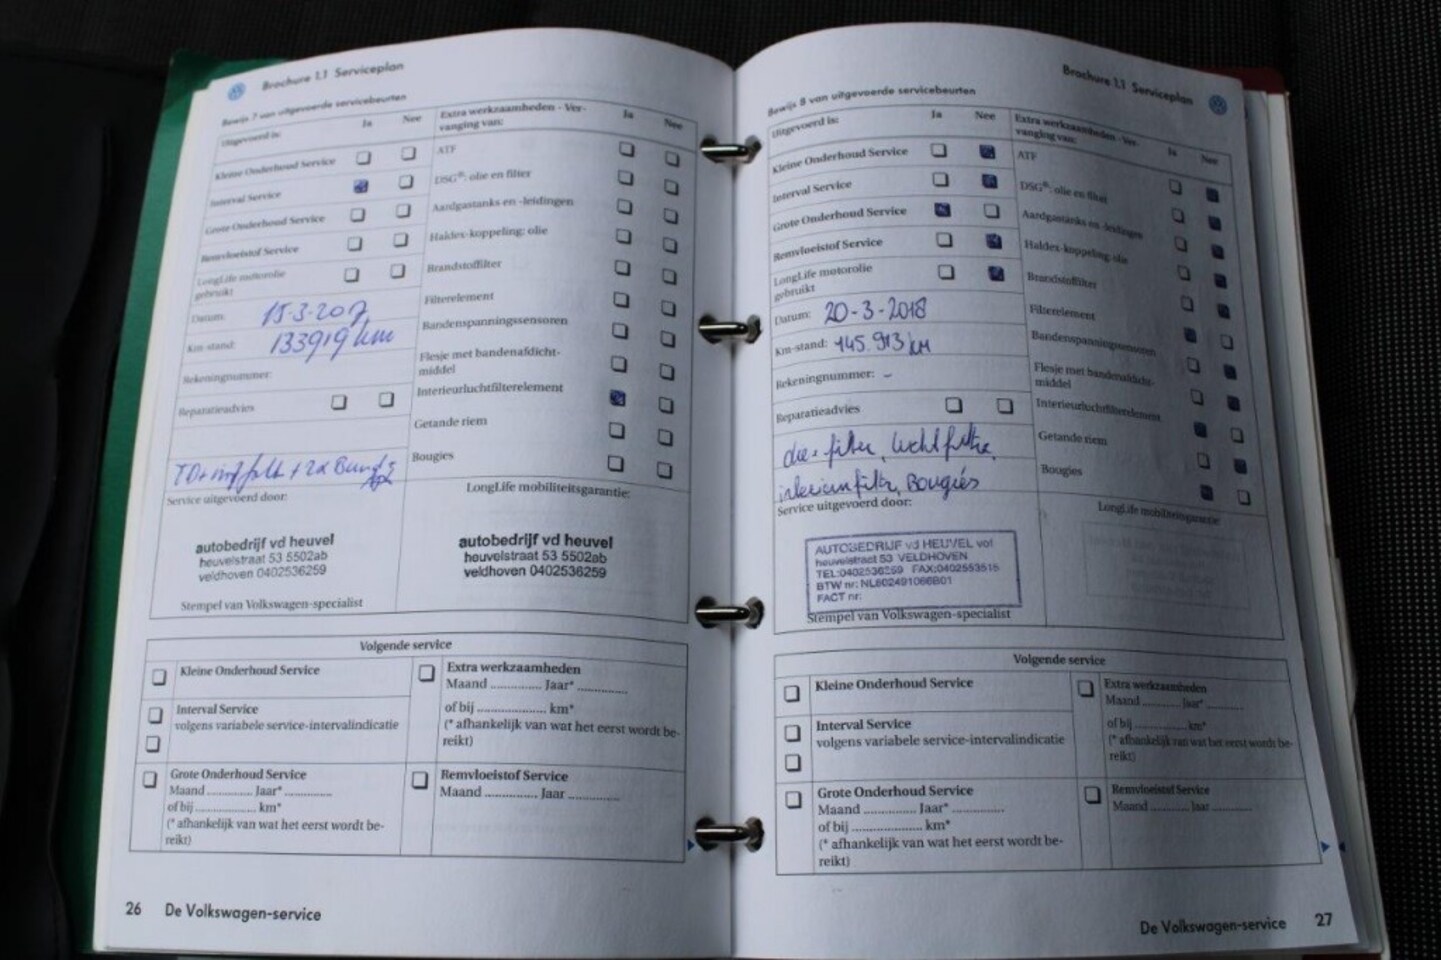 Brochure 1.1 Serviceplan
Bewijs 7 van uitgevoerde servicebeurten
Uitgevoerd is:
Ja
Nee
Extra werkzaamheden - Ver-
vanging van:
Ja
Nee
Kleine Onderhoud Service
Interval Service
Grote Onderhoud Service
Remvloeistof Service
LongLife motorolie
gebruikt
Datum: 15-3-2017
Km-stand: 133919 km
Rekeningnummer:
Reparatieadvies
ATF
DSG®: olie en filter
Aardgastanks en -leidingen
Haldex-koppeling: olie
Brandstoffilter
Filterelement
Bandenspanningssensoren
Flesje met bandenafdicht-
middel
Interieurluchtfilterelement
Getande riem
Bougies
Service uitgevoerd door:
LongLife mobiliteitsgarantie:
autobedrijf vd heuvel
heuvelstraat 53 5502ab
veldhoven 0402536259
autobedrijf vd heuvel
heuvelstraat 53 5502ab
veldhoven 0402536259
Stempel van Volkswagen-specialist
Volgende service
Kleine Onderhoud Service
Interval Service
volgens variabele service-intervalindicatie
Grote Onderhoud Service
Maand ............ Jaar* ............
of bij .................. km*
(* afhankelijk van wat het eerst wordt be-
reikt)
Extra werkzaamheden
Maand ............ Jaar* ............
of bij .................. km*
(* afhankelijk van wat het eerst wordt be-
reikt)
Remvloeistof Service
Maand ............ Jaar ............
26 De Volkswagen-service
Brochure 1.1 Serviceplan
Bewijs 8 van uitgevoerde servicebeurten
Uitgevoerd is:
Ja
Nee
Extra werkzaamheden - Ver-
vanging van:
Ja
Nee
Kleine Onderhoud Service
Interval Service
Grote Onderhoud Service
Remvloeistof Service
LongLife motorolie
gebruikt
Datum: 20-3-2018
Km-stand: 145.913 km
Rekeningnummer: -
Reparatieadvies
filter, luchtfilter,
interieurfilter, Bougies
ATF
DSG®: olie en filter
Aardgastanks en -leidingen
Haldex-koppeling: olie
Brandstoffilter
Filterelement
Bandenspanningssensoren
Flesje met bandenafdicht-
middel
Interieurluchtfilterelement
Getande riem
Bougies
Service uitgevoerd door:
LongLife mobiliteitsgarantie:
AUTOBEDRIJF vd HEUVEL vof
heuvelstraat 53 VELDHOVEN
TEL:0402536259 FAX:0402553515
BTW nr: NL802491066B01
FACT nr:
Stempel van Volkswagen-specialist
Volgende service
Kleine Onderhoud Service
Interval Service
volgens variabele service-intervalindicatie
Grote Onderhoud Service
Maand ............ Jaar* ............
of bij .................. km*
(* afhankelijk van wat het eerst wordt be-
reikt)
Extra werkzaamheden
Maand ............ Jaar* ............
of bij .................. km*
(* afhankelijk van wat het eerst wordt be-
reikt)
Remvloeistof Service
Maand ............ Jaar ............
De Volkswagen-service 27